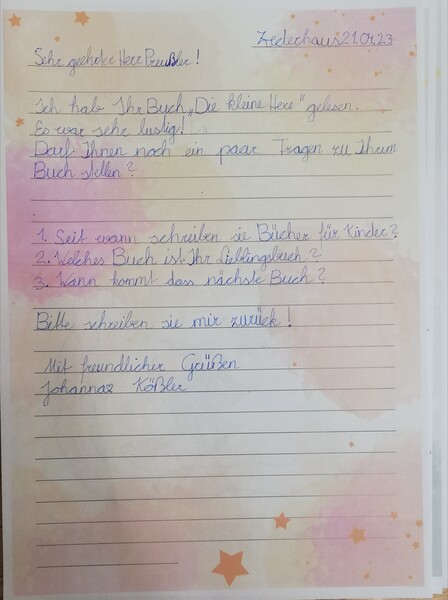 Zederhaus 21.04.23
Sehr geehrter Herr Preußler!
Ich hab Ihr Buch „Die kleine Hexe" gelesen.
Es war sehr lustig!
Darf Ihnen noch ein paar Fragen zu Ihrem
Buch stellen?
1. Seit wann schreiben sie Bücher für Kinder?
2. Welches Buch ist Ihr Lieblingsbuch?
3. Wann kommt dass nächste Buch?
Bitte schreiben sie mir zurück!
Mit freundlicher Grüßen
Johanna Kößler